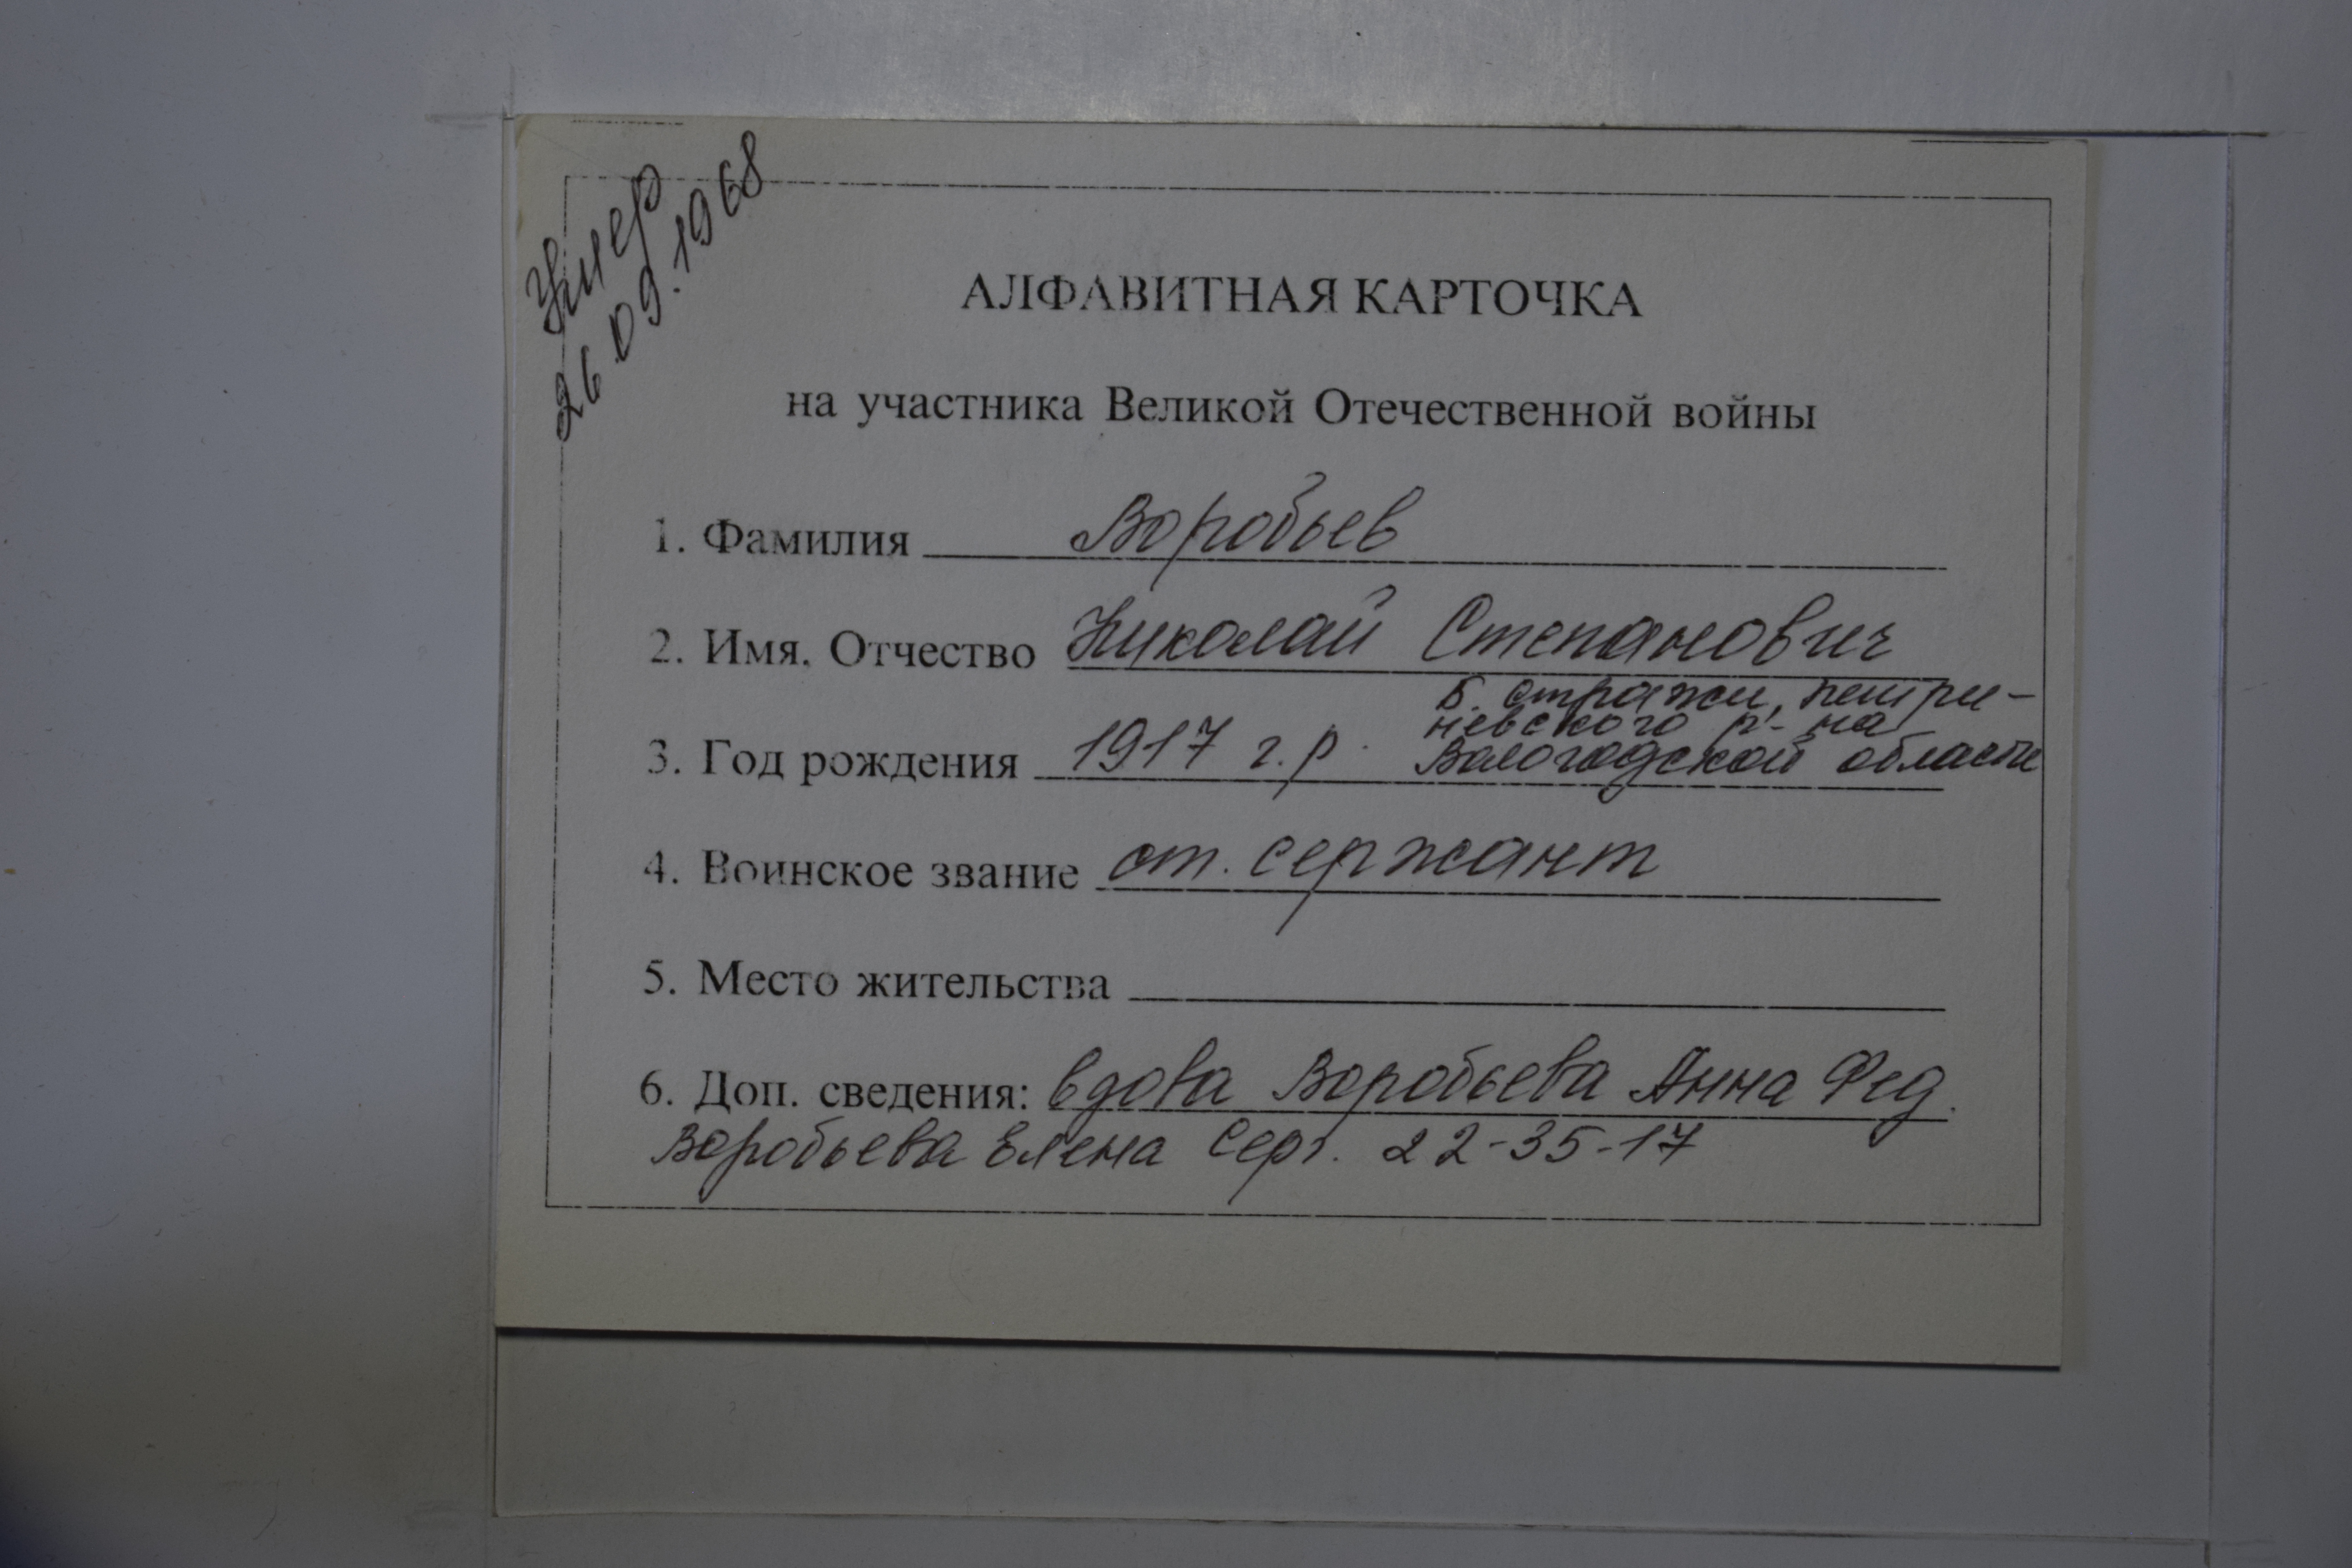 Умер
26.09.1968
АЛФАВИТНАЯ КАРТОЧКА
на участника Великой Отечественной войны
1. Фамилия Воробьев
2. Имя, Отчество Николай Степанович
Б. стражи, петри-
невского р-на
3. Год рождения 1917 г.р. Вологодской области
4. Воинское звание ст. сержант
5. Место жительства
6. Доп. сведения: вдова Воробьева Анна Фед.
Воробьева Елена Серг. 22-35-17